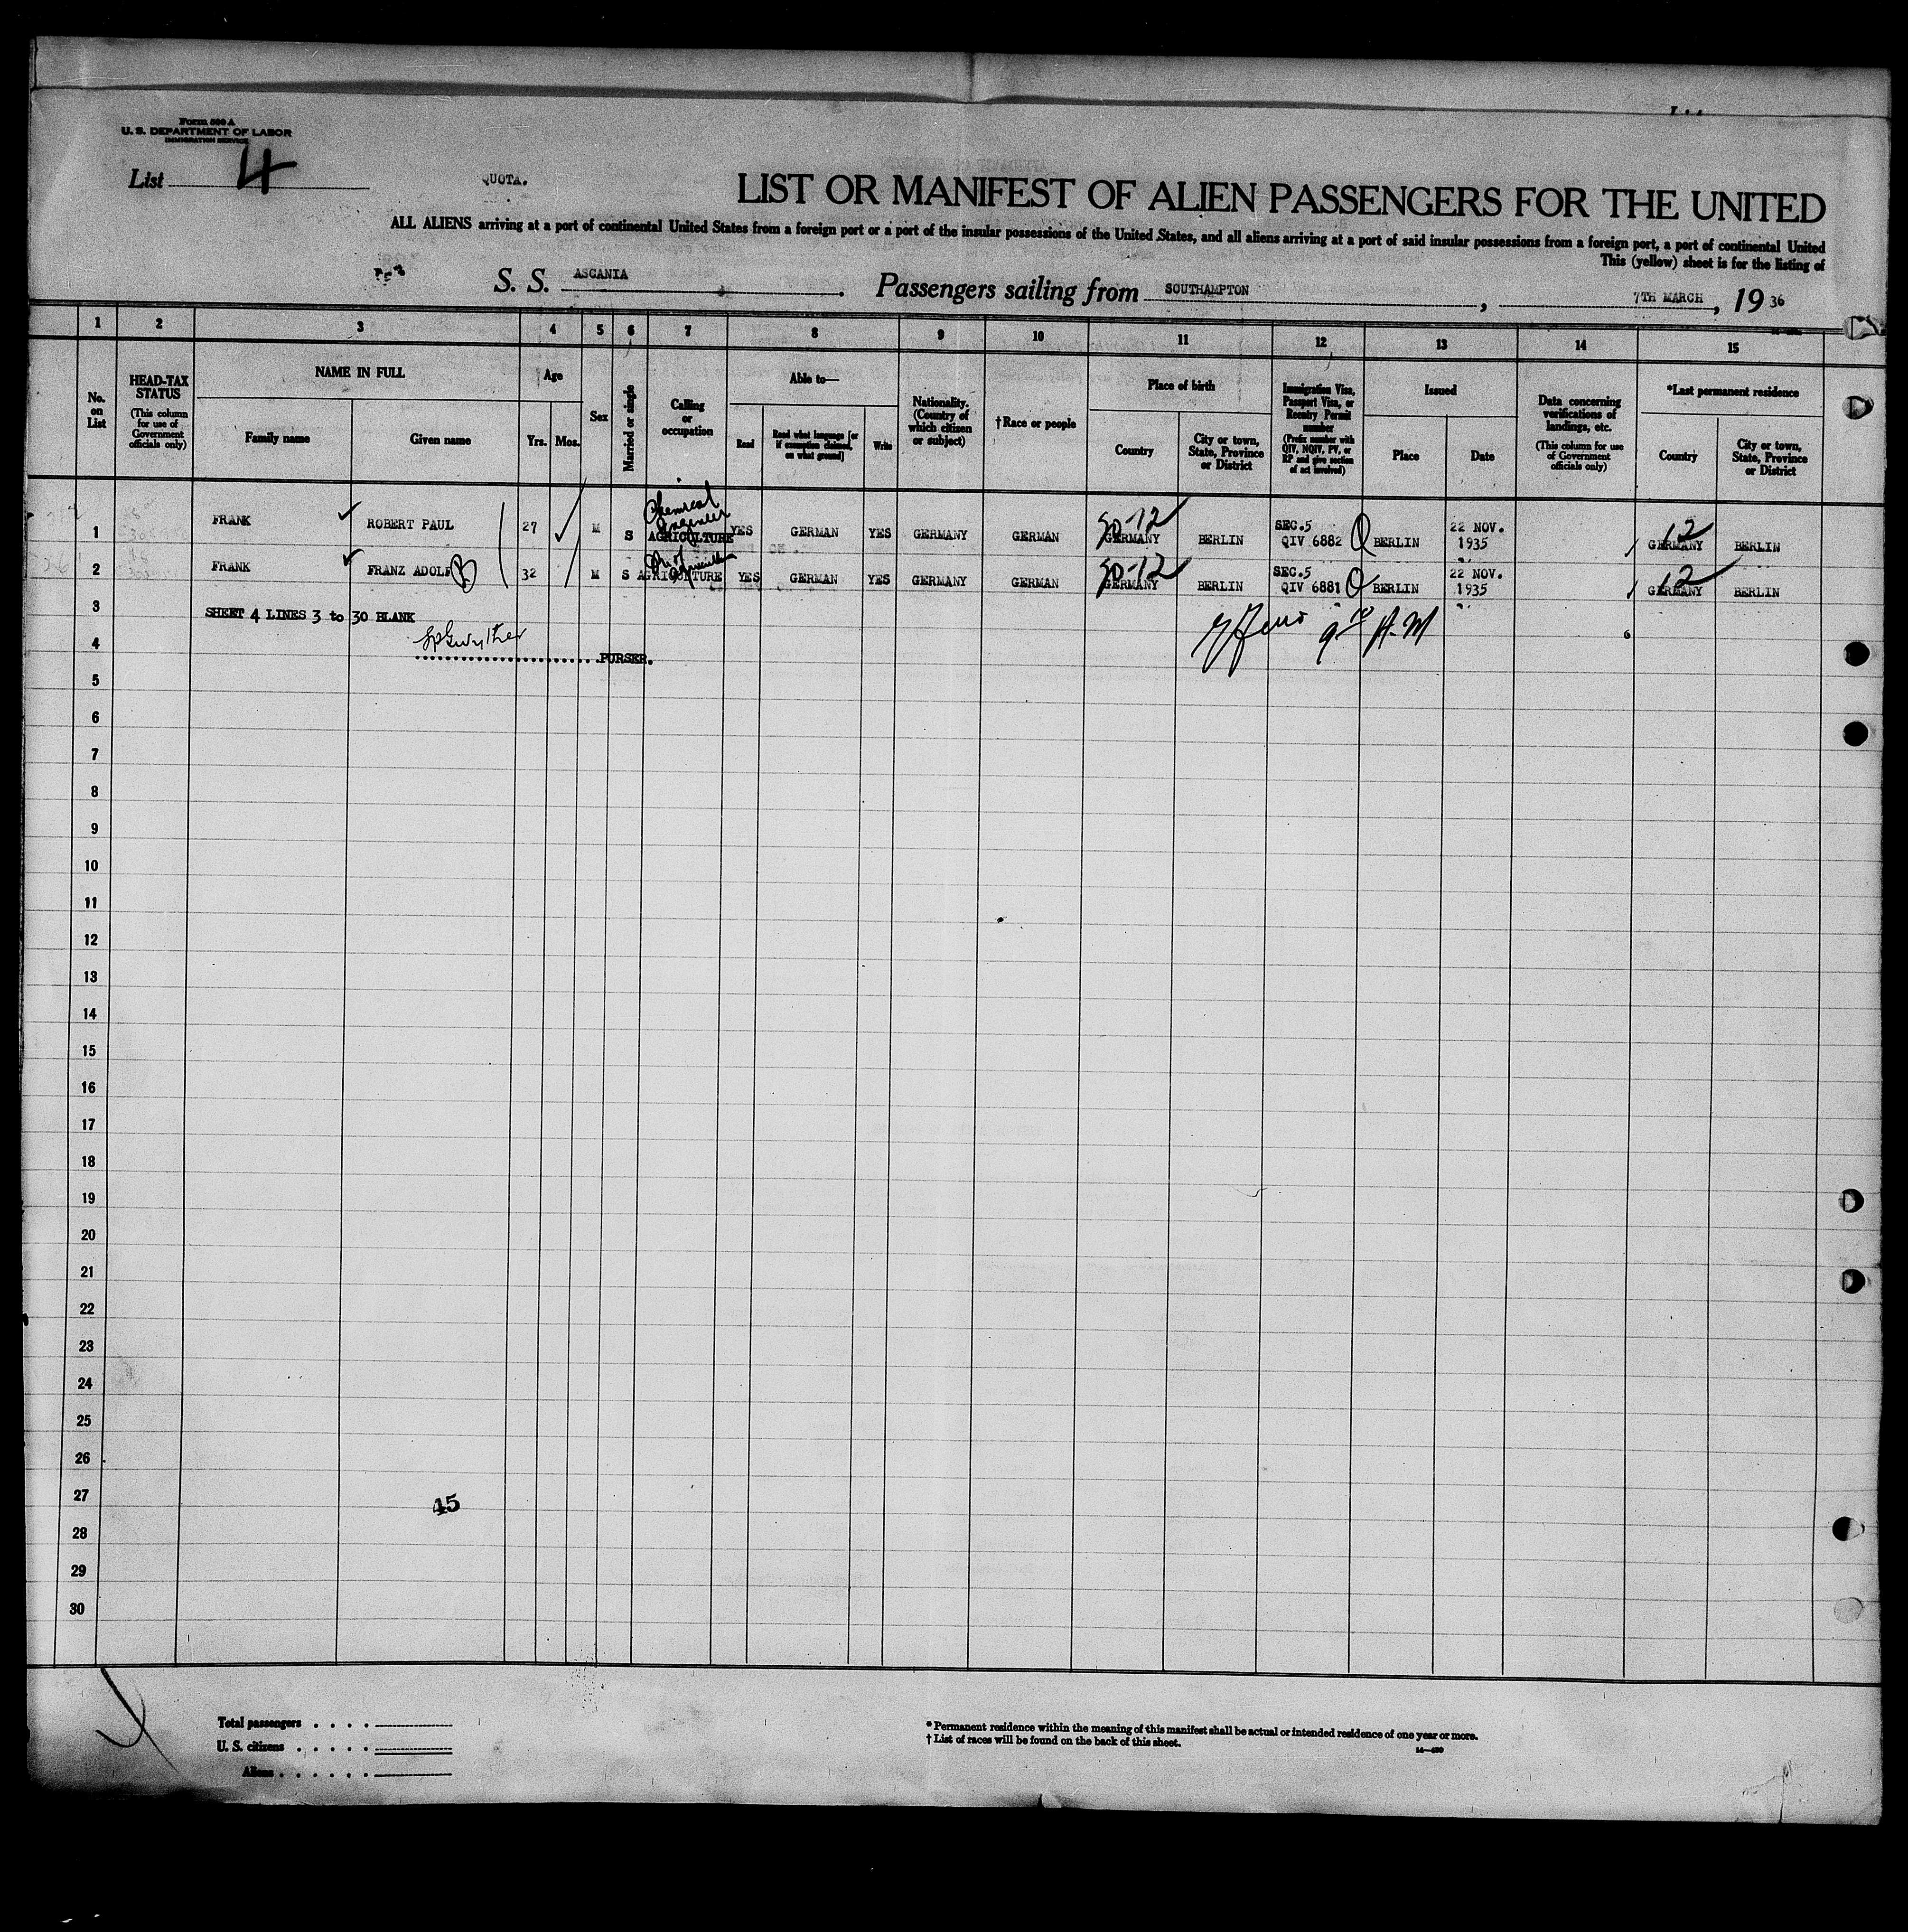 Form 500 A
U. S. DEPARTMENT OF LABOR
IMMIGRATION SERVICE
List 4
QUOTA.
LIST OR MANIFEST OF ALIEN PASSENGERS FOR THE UNITED
ALL ALIENS arriving at a port of continental United States from a foreign port or a port of the insular possessions of the United States, and all aliens arriving at a port of said insular possessions from a foreign port, a port of continental United
This (yellow) sheet is for the listing of
S. S. ASCANIA. Passengers sailing from SOUTHAMPTON, 7TH MARCH, 19 36
1 2 3 4 5 6 7 8 9 10 11 12 13 14 15
No. on List
HEAD-TAX STATUS
(This column for use of Government officials only)
NAME IN FULL
Family name
Given name
Age
Yrs.
Mos.
Sex
Married or single
Calling or occupation
Able to—
Read
Read what language [or if exemption claimed, on what ground]
Write
Nationality. (Country of which citizen or subject)
†Race or people
Place of birth
Country
City or town, State, Province or District
Immigration Visa, Passport Visa, or Reentry Permit number
(Prefix number with QIV, NQIV, PV, or RP and give section of act involved)
Issued
Place
Date
Data concerning verifications of landings, etc.
(This column for use of Government officials only)
*Last permanent residence
Country
City or town, State, Province or District
Chemical
Engineer
1 FRANK ROBERT PAUL 27 M S AGRICULTURE YES GERMAN YES GERMANY GERMAN 50-12 GERMANY BERLIN SEC.5 QIV 6882 BERLIN 22 NOV. 1935 12 GERMANY BERLIN
2 FRANK FRANZ ADOLF 32 M S AGRICULTURE YES GERMAN YES GERMANY GERMAN 50-12 GERMANY BERLIN SEC.5 QIV 6881 BERLIN 22 NOV. 1935 12 GERMANY BERLIN
3 SHEET 4 LINES 3 to 30 BLANK
9 10 A.M
4 PURSER.
5
6
7
8
9
10
11
12
13
14
15
16
17
18
19
20
21
22
23
24
25
26
27
45
28
29
30
Total passengers . . . .
U. S. citizens . . . . .
Aliens . . . . . .
* Permanent residence within the meaning of this manifest shall be actual or intended residence of one year or more.
† List of races will be found on the back of this sheet.
14—430